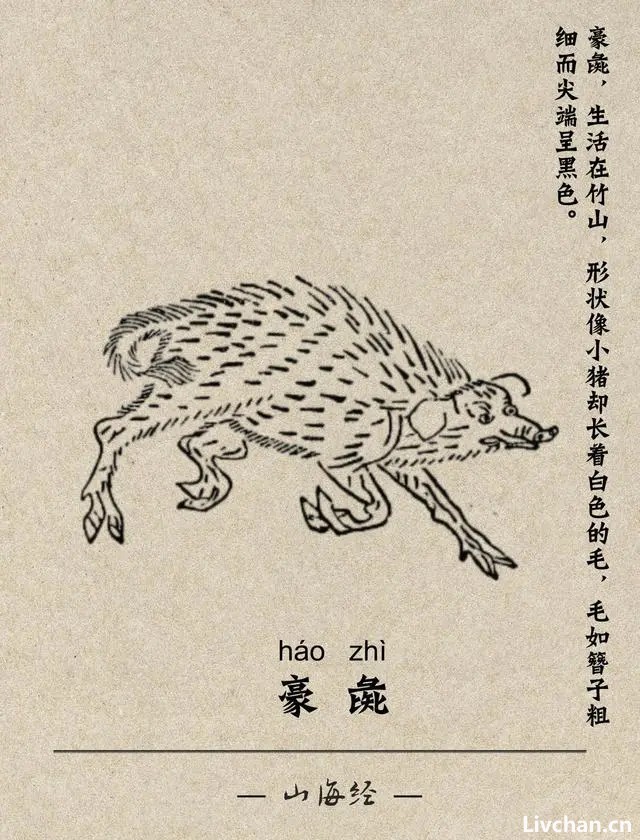 豪彘，生活在竹山，形状像小猪却长着白色的毛，毛如簪子粗
细而尖端呈黑色。
háo zhì
豪彘
— 山海经 —
Livchan.cn